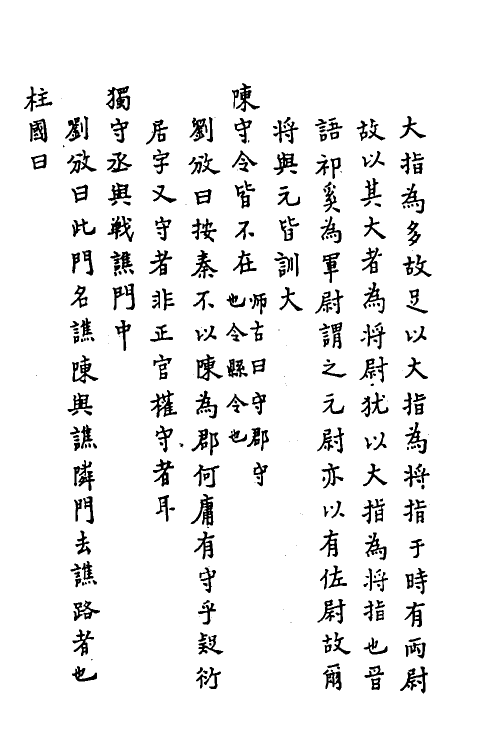 大指為多故足以大指為將指于時有兩尉
故以其大者為将尉犹以大指為将指也晋
語祁奚為軍尉謂之元尉亦以有佐尉故爾
将與元皆訓大
陳守令皆不在師古曰守郡守也令縣令也
劉攽曰按秦不以陳為郡何庸有守乎疑衍
居字又守者非正官權守者耳
獨守丞與戦譙門中
劉攽曰此門名譙陳與譙隣門去譙路者也
柱國曰